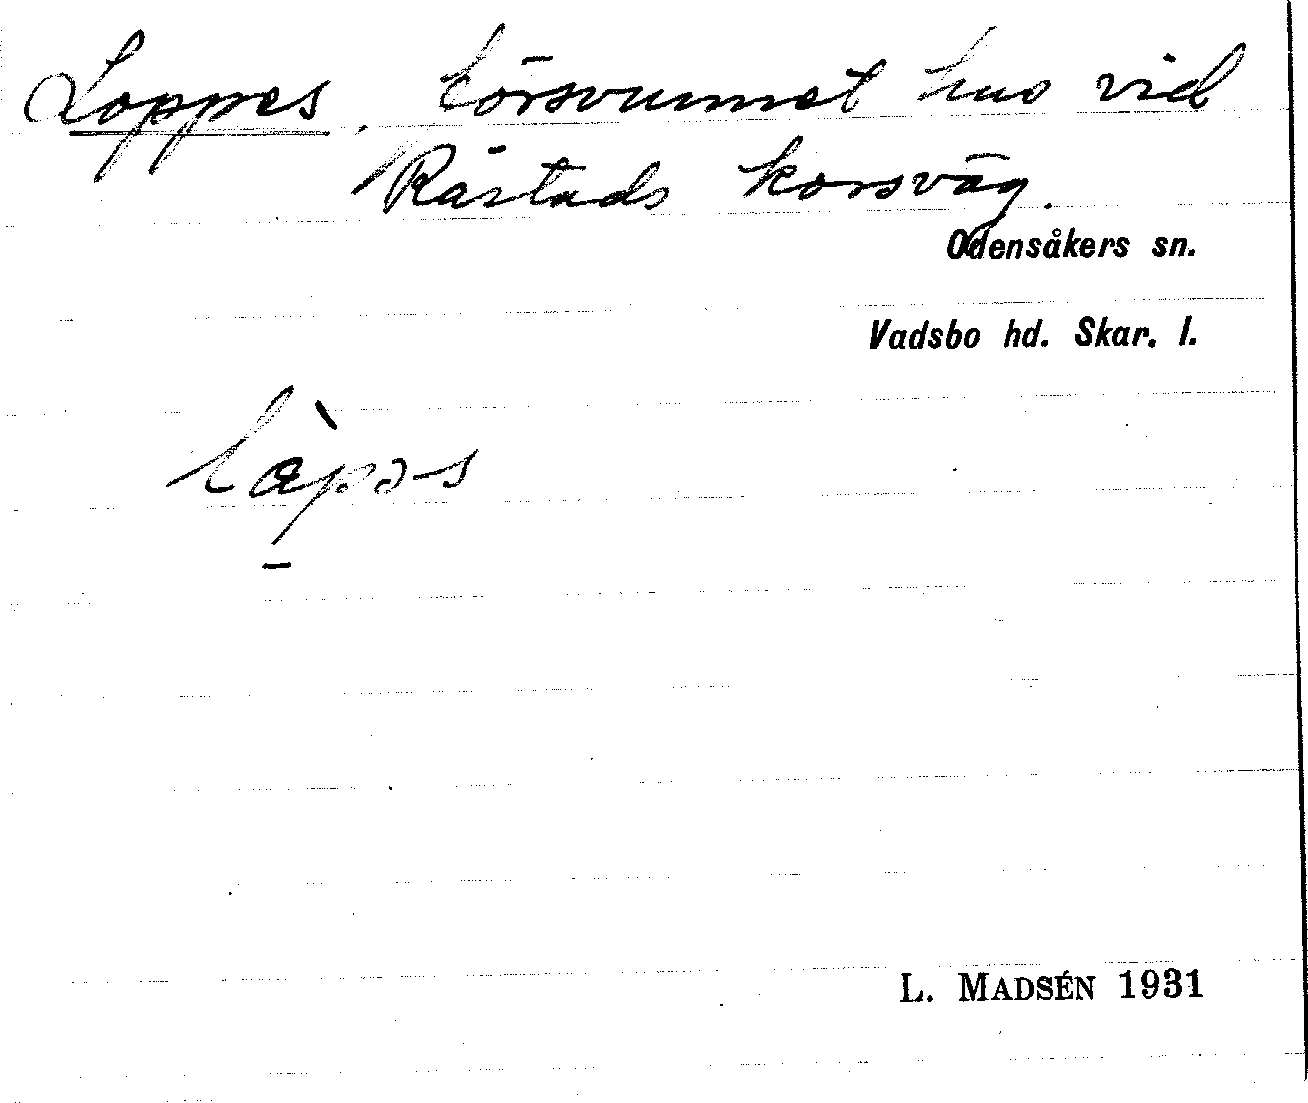 Loppes, försvunnet hus vid
Råstads korsväg.
Odensåkers sn.
Vadsbo hd. Skar. l.
L. MADSÉN 1931